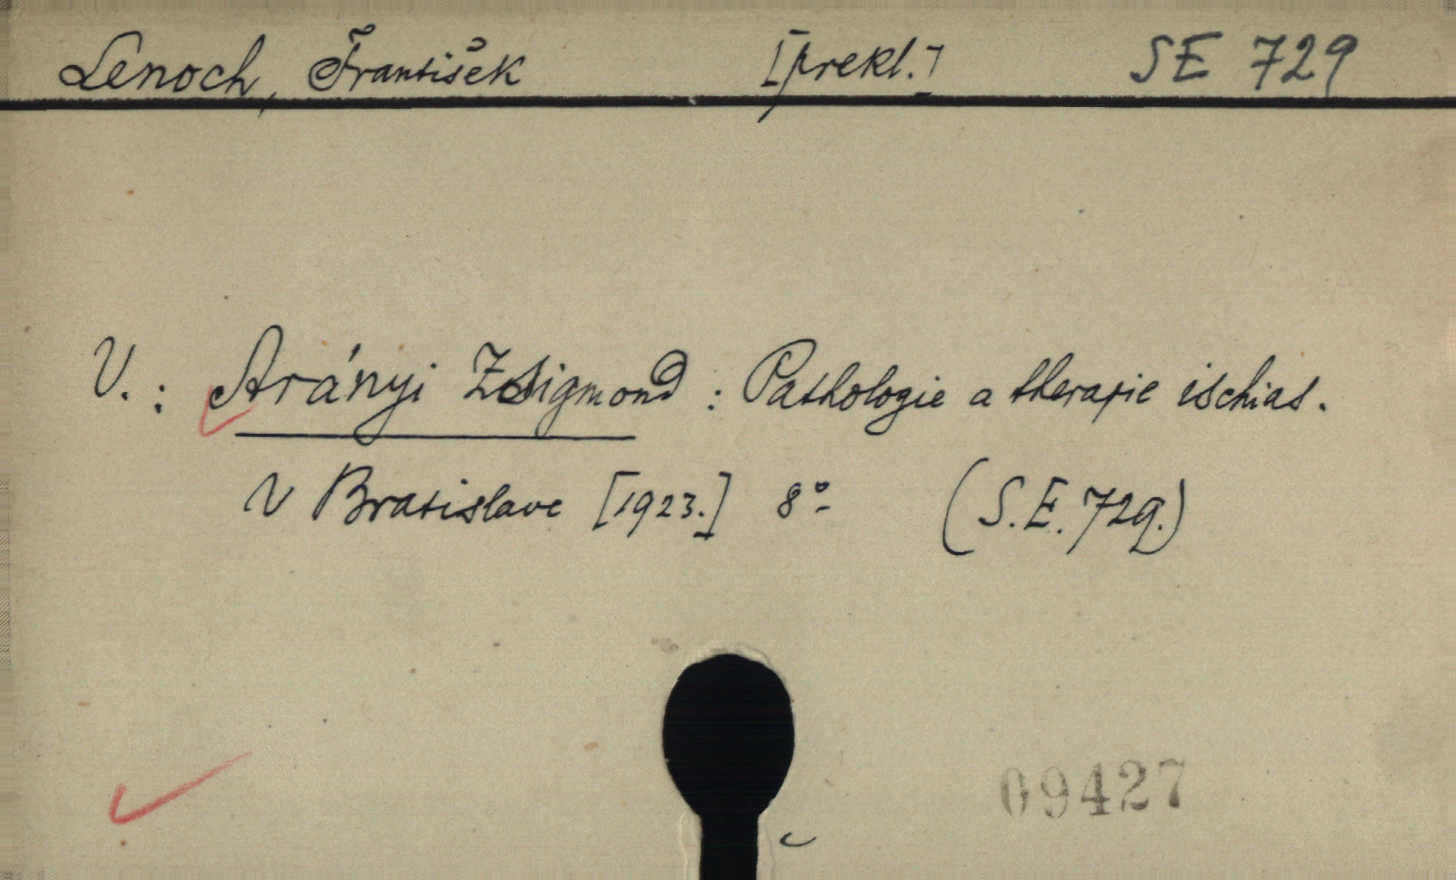 Lenoch, František [prekl.] SE 729
V.: Arányi Zsigmond: Pathologie a therapie ischias.
V Bratislave [1923.] 8° (S.E. 729.)
09427